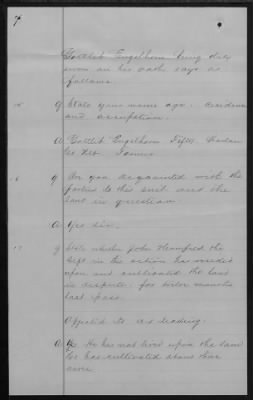 7
Gottlieb Engelhorn being duly
sworn on his oath says as
follows.
15 Q State your name age. residence
and occupation.
A Gottlieb Engelhorn Fifty Harlan
Co Neb. Farmer
16 Q Are you acquainted with the
parties to this suit and the
land in question
A Yes Sir.
17 Q State whether John
Deft in the action has resided
upon and cultivated the land
in dispute for six months
last past.
Objected to as leading.
A A. He has not lived upon the land
he has cultivated about four
acres